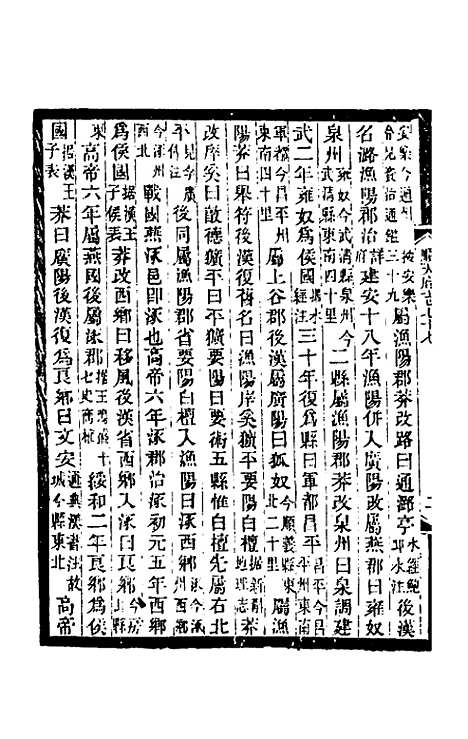 屬漁陽郡莽改路曰通潞亭水經鮑邱水注後漢
名潞漁陽郡治詳建安十八年漁陽併入廣陽改屬燕郡曰雍奴
泉州雍奴今武清縣泉州武清縣東南四十里今二縣屬漁陽郡莽改泉州曰泉調建
武二年雍奴爲侯國據水經注三十年復爲縣曰軍都昌平昌平今昌平州東南
軍都今昌平州東南四十里屬上谷郡後漢屬廣陽曰狐奴今順義縣東北二十里屬漁
陽莽曰舉符後漢復舊名曰漁陽庠奚獷平要陽白檀據新斠地理志莽
改庠奚曰敦德獷平曰平獷要陽曰要術五縣惟白檀先屬右北
平後同屬漁陽郡省要陽白檀入漁陽曰涿西鄉涿今涿州西鄉
今涿州西北戰國燕涿邑即涿也高帝六年涿郡治涿初元五年西鄉
爲侯國據漢王子侯表莽改西鄉曰移風後漢省西鄉入涿曰良鄉今房山縣
東高帝六年屬燕國後屬涿郡據王鳴盛十七史商榷綏和二年良鄉爲侯
國據漢王子表莽曰廣陽後漢復爲良鄉曰文安通典漢舊治故城今縣東北高帝